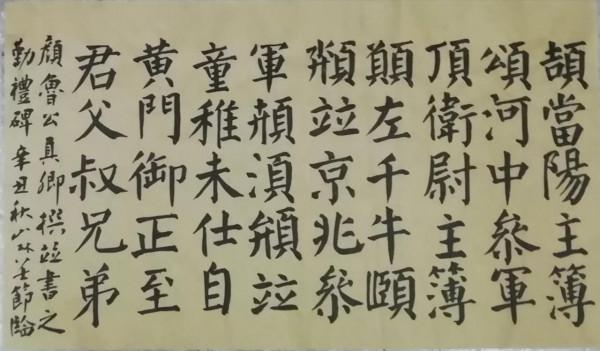 頡當陽主簿
頌河中叅軍
頂衛尉主簿
顚左千牛頤
竝京兆叅
軍湏竝
童稚未仕自
黄門御正至
君父叔兄弟
顏魯公真卿撰竝書之
勤禮碑辛丑秋山林節臨